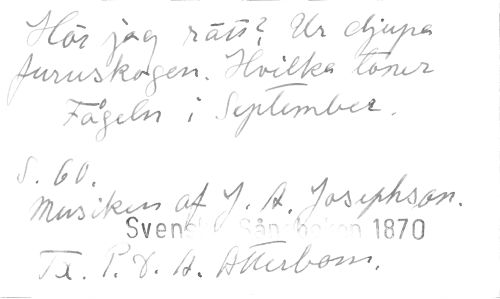 Hör jag rätt? Ur djupa
furuskogen. Hvilka toner
Fågeln i September.
S. 60.
Musiken af J. A. Josephson.
Svenska Sångboken 1870
Tx. P. D. A. Atterbom.